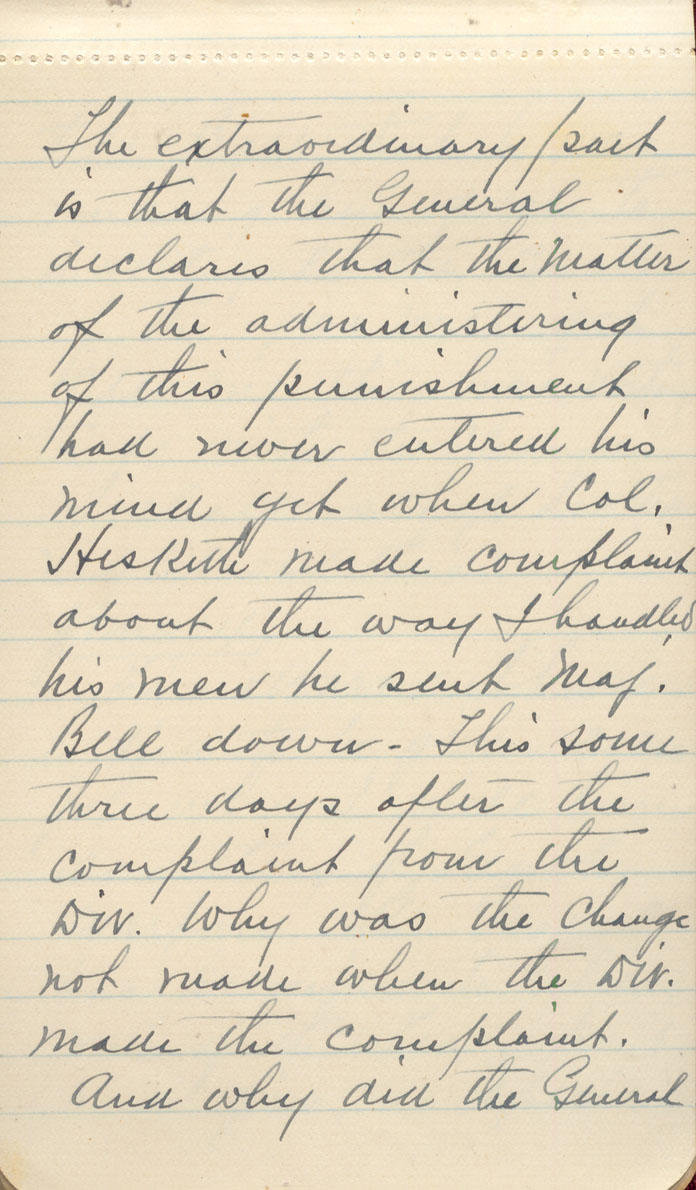 The extraordinary part
is that the General
declares that the matter
of the administering
of this punishment
had never entered his
mind yet when Col.
Hesketh made complaint
about the way I handled
his men he sent Maj.
Bell down - This some
three days after the
complaint from the
Div. Why was the change
not made when the Div.
made the complaint.
And why did the General